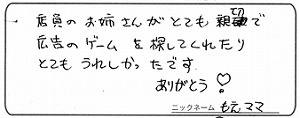 店員のお姉さんがとても親切で
広告のゲームを探してくれたり
とてもうれしかったです。
ありがとう♡
ニックネーム もえママ